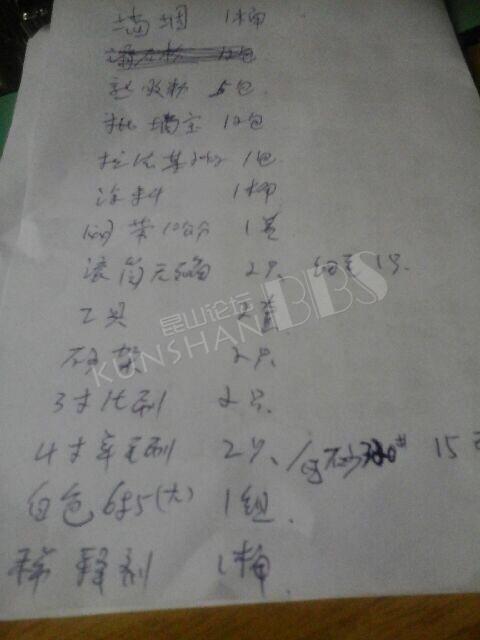 墙锢 1桶
熟胶粉 5包
批墙宝 12包
拉法基 1包
涂料 1桶
网带 1卷
滚筒无痕 2只、细毛1只.
工具 2套
砂架 2只
3寸毛刷 2只.
4寸羊毛刷 2只、 砂320# 15
白色685(大) 1组.
稀释剂 1桶
昆山论坛
KUNSHAN BBS